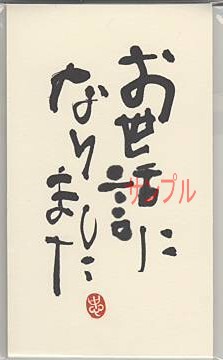 お世話に
なりました
サンプル
忠